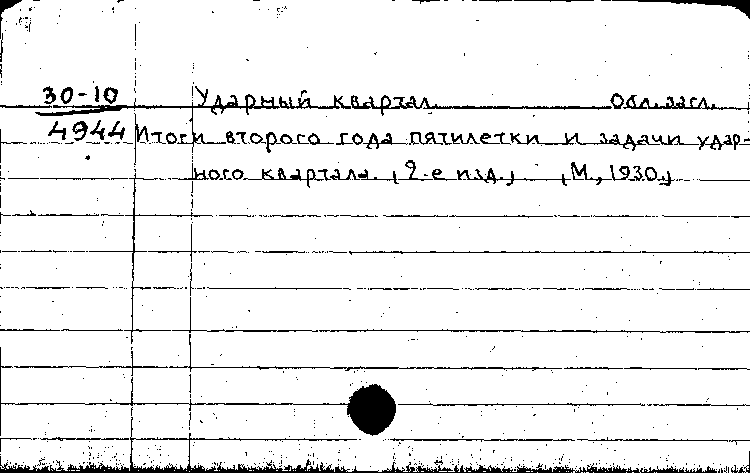 30-10 Ударный квартал. Обл. загл.
4944 Итоги второго года пятилетки и задачи удар-
ного квартала. [2-е изд.] [М., 1930.]